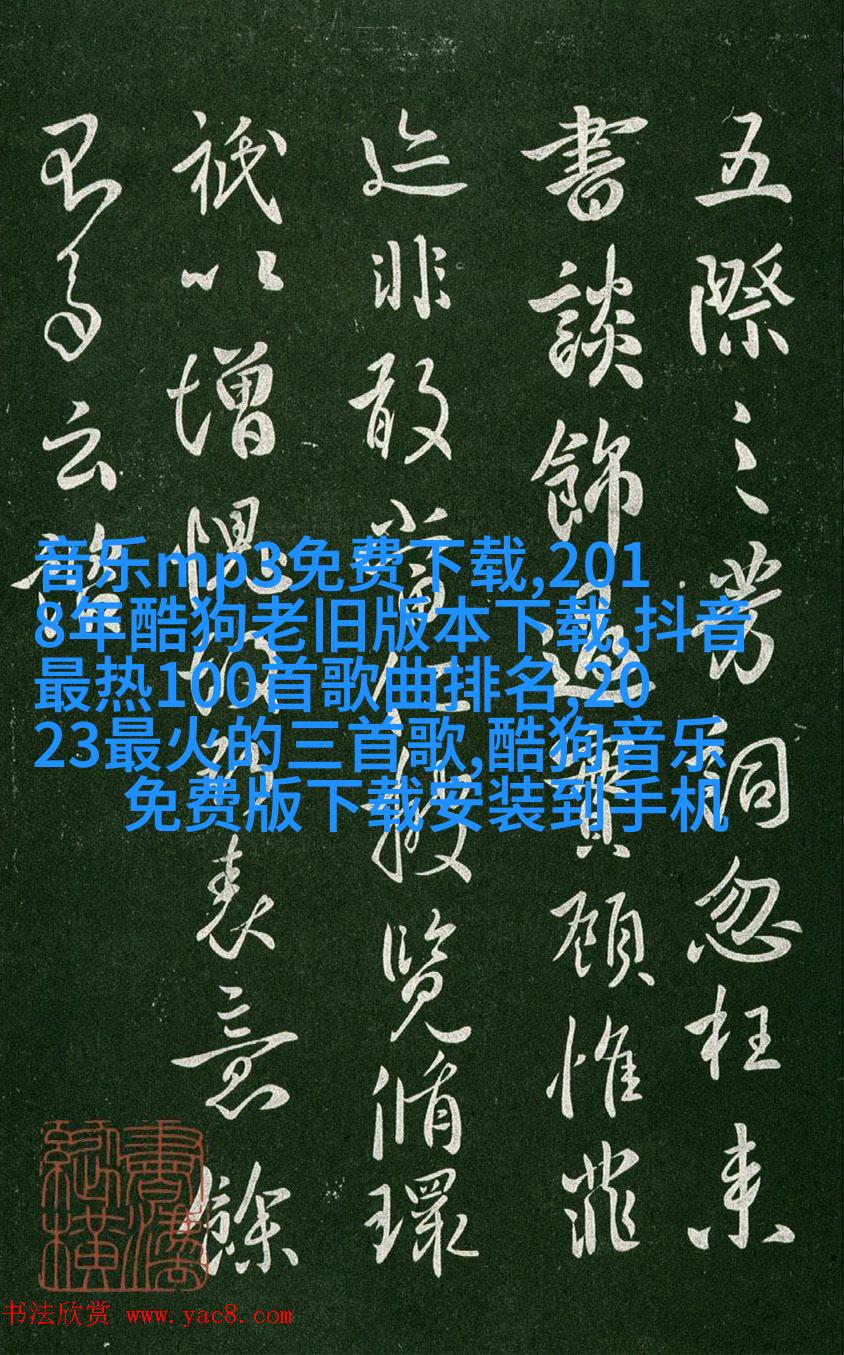 五際之勞忽枉来
書談飾過實顧惟菲
迹非敢當仁覽脩環
祇以增愧表意餘
云
音乐mp3免费下载,201
8年酷狗老旧版本下载,抖音
最热100首歌曲排名,20
23最火的三首歌,酷狗音乐
免费版下载安装到手机
書法縱横
书法欣赏 www.yac8.com